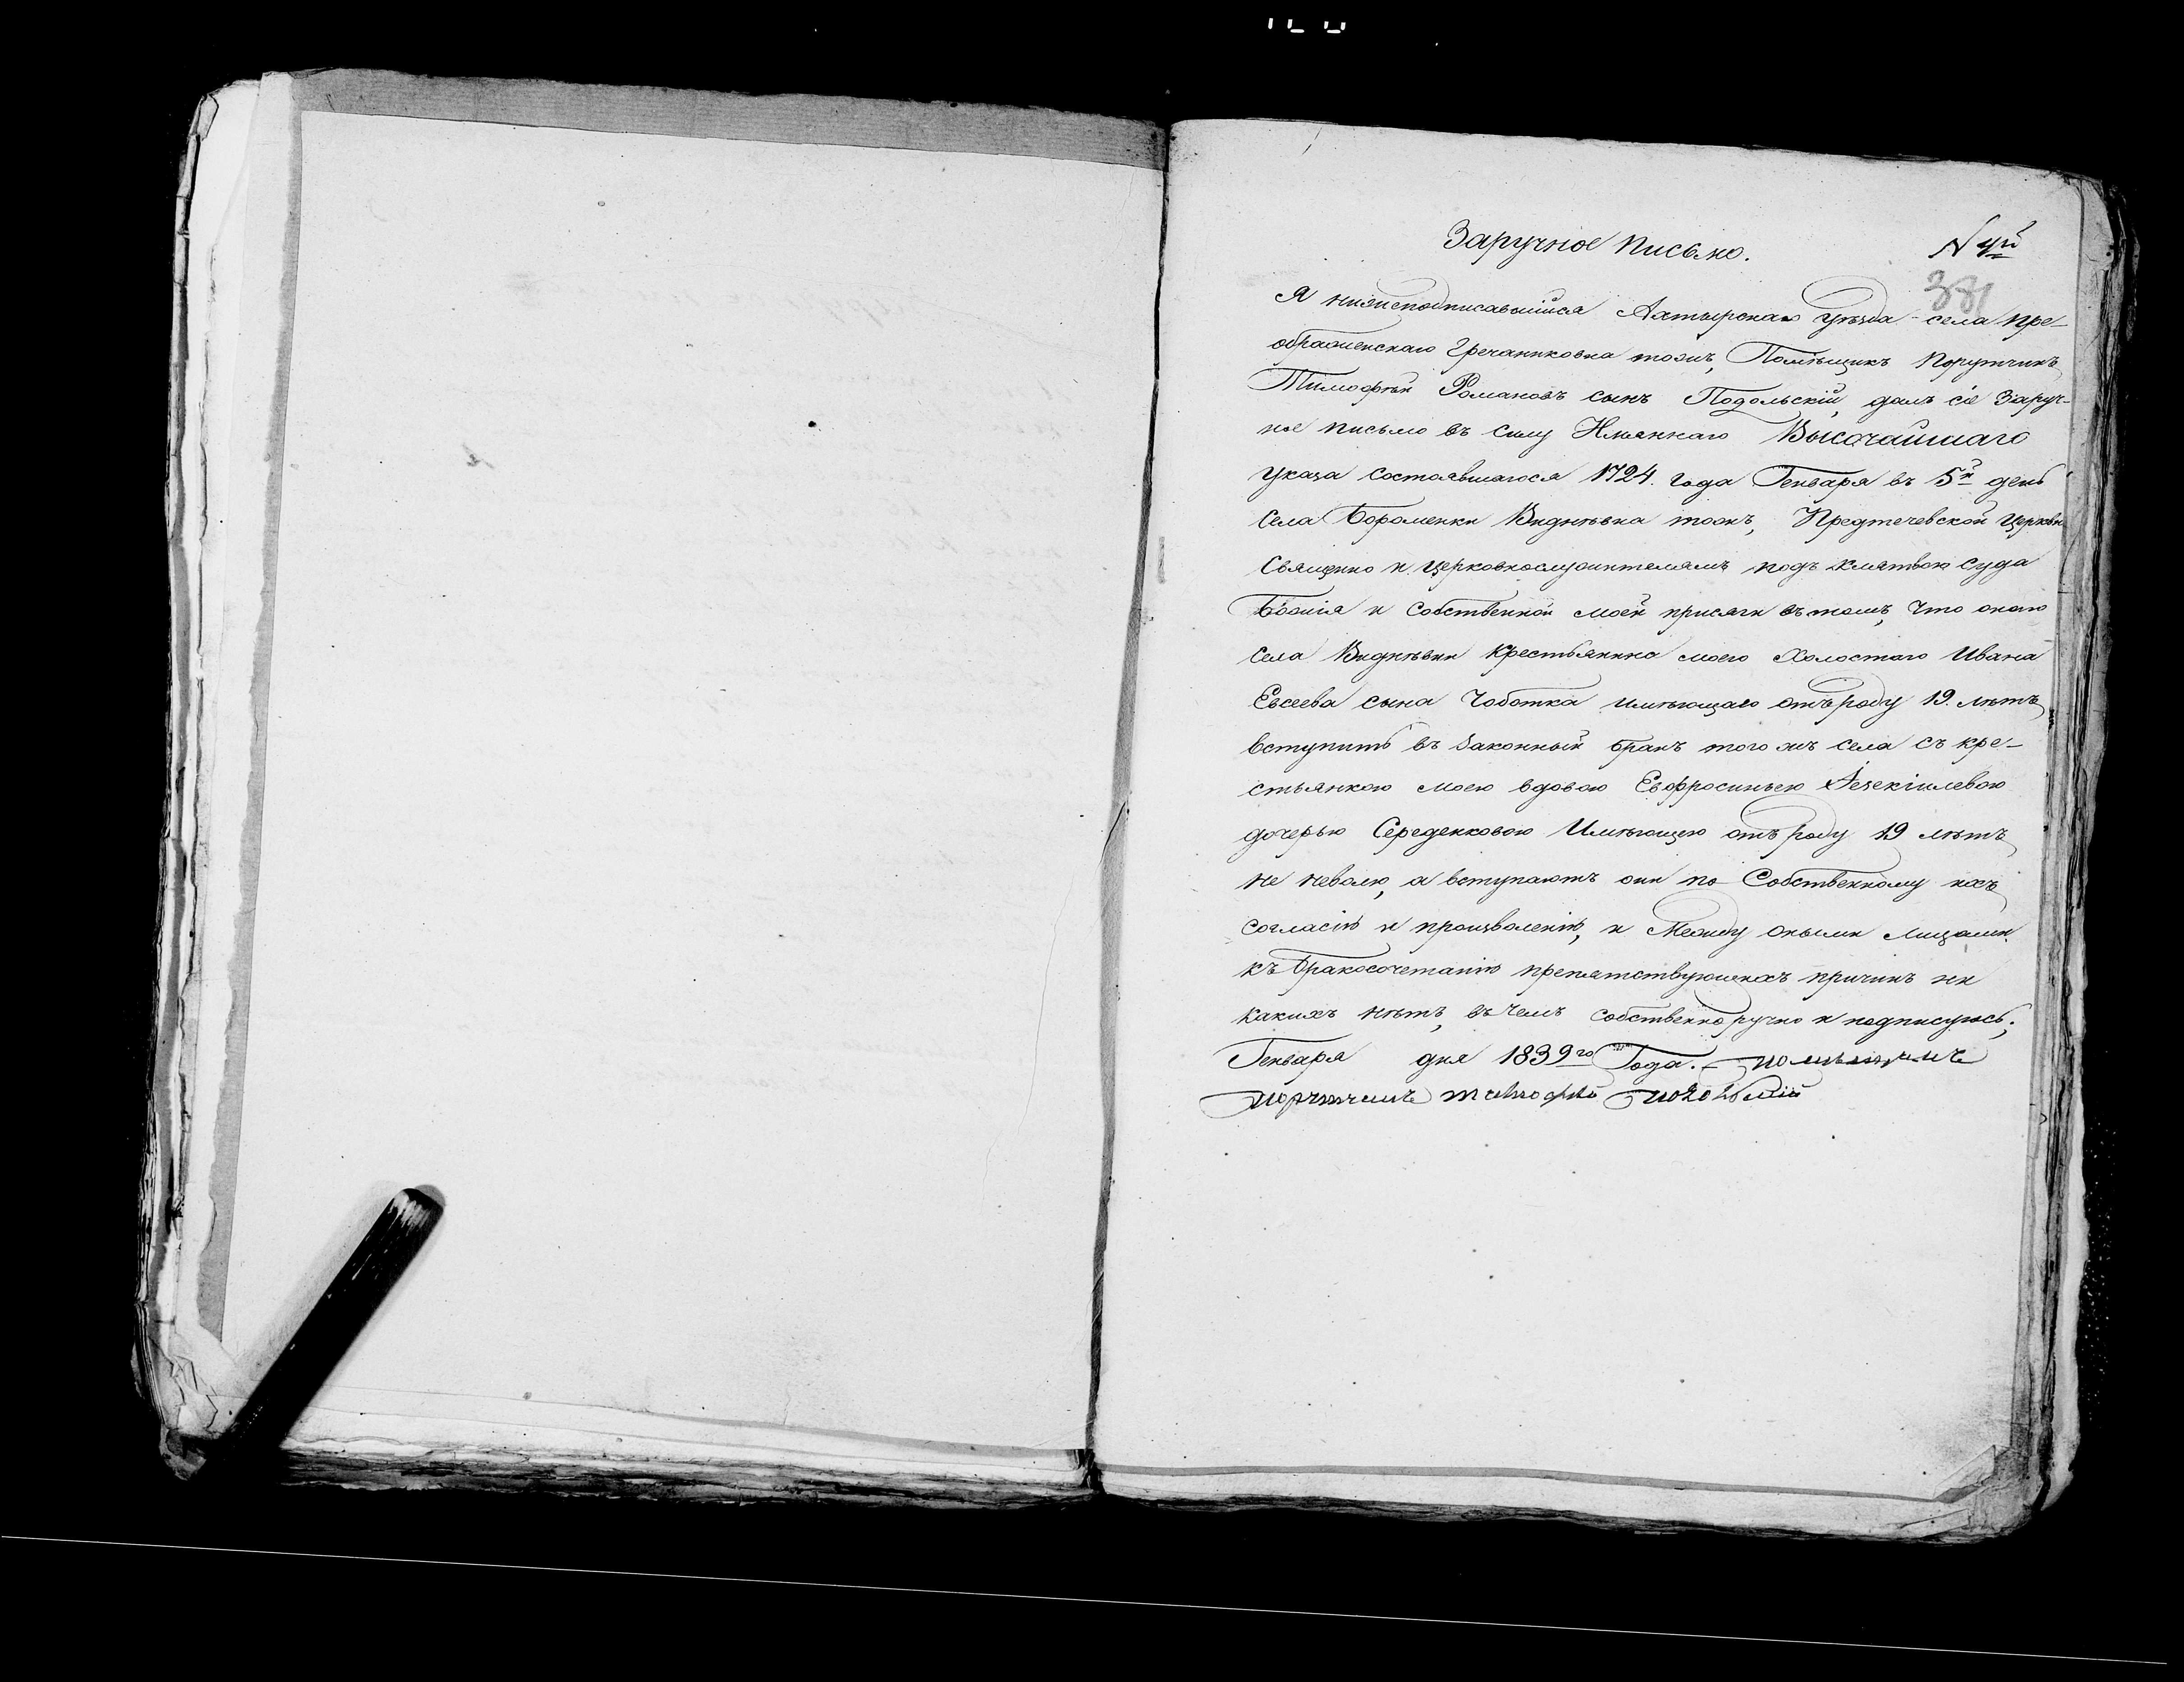 Заручное Письмо.
N 4й
381
Я нижеподписавшийся Ахтырскаго Уѣзда села Пре-
ображенскаго Гречаниковка тожъ, Помѣщикъ Порутчикъ
Тимофѣй Романовъ сынъ Подольскій, далъ сіе Заруч-
ное письмо въ силу Имяннаго Высочайшаго
Указа состоявшагося 1724. года Генваря въ 5й день
Села Бороменки Виднѣвка тожъ, Предтечевской Церкви
Священно и Церковнослужителямъ подъ клятвою суда
Божія и Собственной моей присяги въ томъ, Что оного
Села Виднѣвки Крестьянина моего Холостаго Ивана
Евсеева сына Чоботка имѣющаго отъ роду 19. лѣтъ
вступить въ Законный бракъ того жъ села съ кре-
стьянкою моею вдовою Евфросиньею Іезекіилевою
дочерью Середенковою Имѣющею отъ роду 19 лѣтъ
не неволю, а вступаютъ они по Собственному ихъ
согласію и произволенію, и Между оными лицами
къ бракосочетанію препятствующихъ причинъ ни
какихъ нѣтъ, въ Чемъ собственно ручно и подписуюсь,
Генваря дня 1839го Года. помѣщикъ
порутчикъ тимофѣй подольскій